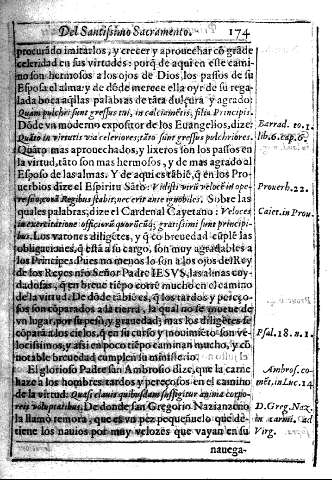 Del Santissimo Sacramento. 174
procurado imitarlos, y crecer y aprouechar cõ grãde
celeridad en sus virtudes: porq̃ de aqui en este cami-
no son hermosos a los ojos de Dios, los passos de su
Esposa el alma y de dõde merece ella oyr de su rega-
lada boca aq̃llas palabras de tãta dulçura y agrado:
Quam pulchri sunt gressus tui, in calciamẽtis, filia Principis.
Dõde vn moderno expositor de los Euangelios, dize:
Quãto in virtutis via celeriores; tãto sunt gressus pulchriores.
Quãto mas aprouechados, y lixeros son los passos en
la virtud, tãto son mas hermosos, y de mas agrado al
Esposo de las almas. Y de aqui es tãbiẽ, q̃ en los Pro-
uerbios dize el Espiritu Sãto: Vidisti virũ velocẽ in ope-
re suo, corã Regibus stabit, nec erit ante ignobiles. Sobre las
quales palabras, dize el Cardenal Cayetano: Veloces
in exercitatione officiorũ quorũcũq;, gratissimi sunt principi-
bus. Los varones diligẽtes, y q̃ cõ breuedad cũplẽ las
obligaciones, q̃ estã a su cargo, son muy agradables a
los Principes. Pues no menos lo son a los ojos del Rey
de los Reyes nr̃o Señor Padre IESVS, las almas cuy-
dadosas, q̃ en breue tiẽpo corrẽ mucho en el camino
de la virtud. De dõde tãbiẽ es, q̃ los tardos y pereço-
sos son cõparados a la tierra, la qual no se mueue de
vn lugar, por su peso, y grauedad; mas los diligẽtes se
cõparã a los cielos, q̃ en su curso y mouimiẽto son ve-
locissimos, y assi en poco tiẽpo caminan mucho, y cõ
notable breuedad cumplen su ministerio.
El glorioso Padre san Ambrosio dize, que la carne
haze a los hombres tardos y pereçosos en el camino
de la virtud: Quasi clauis quibusdam suffigitur anima corpo-
reis voluptatibus. De donde san Gregorio Nazianzeno
la llamò remora, que es vn pez pequeñuelo que de-
tiene los nauios por muy velozes que vayan en su
nauega-
Barrad. to. 1.
lib. 6. cap. 6.
Prouerb. 22.
Caiet. in Prou.
Psal. 18. n. 1.
Ambros. co-
mẽt. in Luc. 14
D. Greg. Naz.
in carmi. ad
Virg.